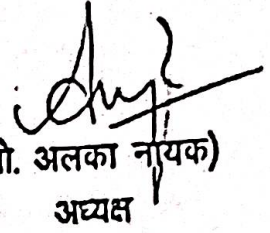 ो. अलका नायक)
अध्यक्ष